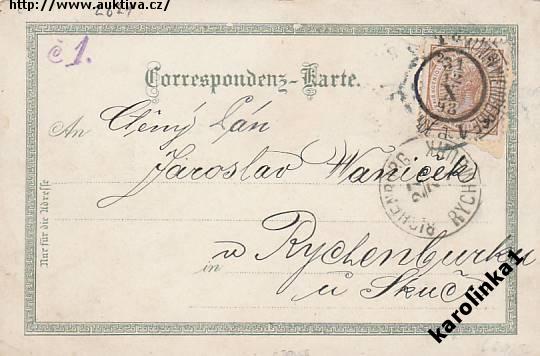 http://www.auktiva.cz/
č 1.
Correspondenz-Karte.
An
Ctěný Pán
Jaroslav Waniček
v Rychenburku
in
u Skuč
Nur für die Adresse
RICHENBURG
RYCH
karolinka1